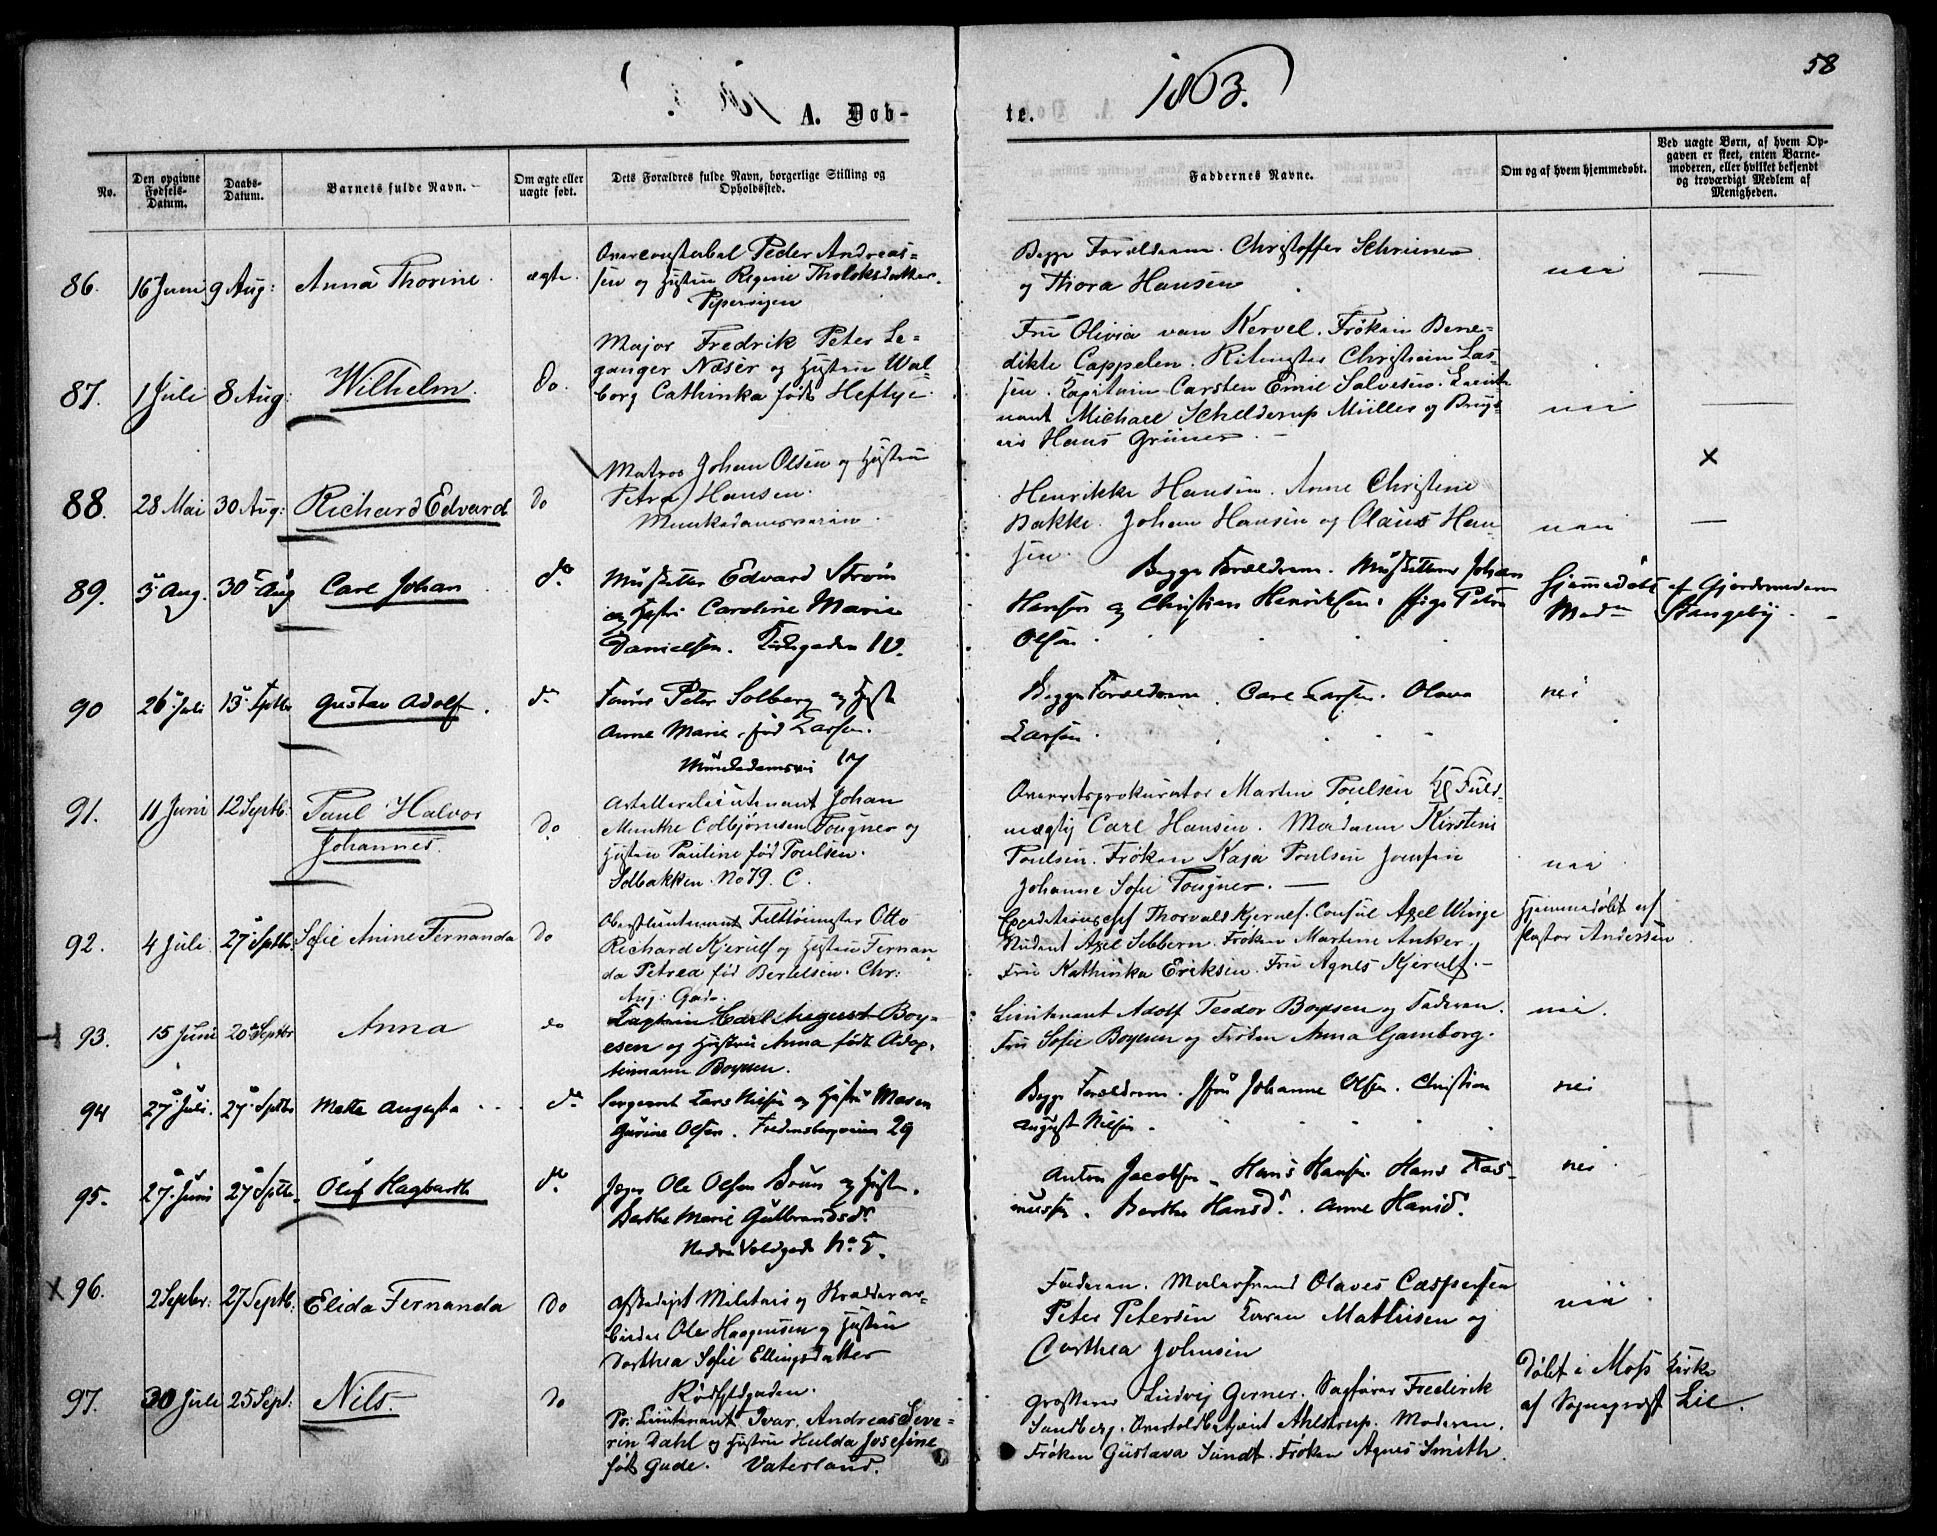 58
1863.
A. Døb-
te.
No.
Den opgivne Fødsels-Datum.
Daabs-Datum.
Barnets fulde Navn.
Om ægte eller uægte født.
Dets Forældres fulde Navn, borgerlige Stilling og Opholdssted.
Faddernes Navne.
Om og af hvem hjemmedøbt.
Ved uægte Børn, af hvem Opgaven er skeet, enten Barnemoderen, eller hvilket bekjendt og troværdigt Medlem af Menigheden.
86. 16 Juni 9 Aug: Anna Thorine. ægte.
Peder Andreas-
sen og Hustru Regine
Pipervigen
Begge Forældrene. Christoffer
og Thora Hansen
nei
87. 1 Juli 8 Aug: Wilhelm. Do.
Major Fredrik Peter Le-
ganger Næser og Hustru Wal-
borg Cathinka født Heftye.
Fru Olivia van Kervel. Frøken Bene-
dikte Cappelen. Ritmester Christian Las-
sen. Kapitain Carsten Emil Salvesen. Lieute-
nant Michael Schelderup Müller og
Hans Grüner.
nei
88. 28 Mai 30 Aug: Richard Edvard do
Matros Johan Olsen og Hustru
Petra Hansen.
Munkedamsveien.
Henrikke Hansen. Anne Christine
Bakke. Johan Hansen og Olaus Han-
sen.
nei
89. 5 Aug. 30 Aug Carl Johan do
Musketeer Edvard Strøm
og Hustru Caroline Marie
Danielsen. 10.
Begge Forældrene. Johan
Hansen og Christian Henriksen. Pige Petra
Olsen.
Hjemmedøbt af Gjordemoderen
Mad. Stangeby.
90 26 Juli 13 Sptbr Gustav Adolf. do
Peter Solberg og Hustru
Anne Marie, fød Larsen.
Munkedamsvei 17
Begge Forældrene, Carl Larsen. Olava
Larsen.
nei
91. 11 Juni 12 Septb. Paul Halvor
Johannes. Do
Artillerilieutenant Johan
Munthe Colbjørnsen Tougner og
Hustru Pauline fød Poulsen.
No 79. C.
Overretsprokurator Martin Poulsen Fuld-
mægtig Carl Hansen. Madam Kirstine
Poulsen. Frøken Kaja Poulsen Jomfru
Johanne Sofie Tougner.
nei
92. 4 Juli 27 Sptbr. Sofie Anine Fernanda do
Oberstlieutenant Felttøimester Otto
Richard Kjerulf og Hustru Fernan-
da Petrea fød Bertelsen. Chr:
Aug: Gade.
Expeditionschef Thorvald Kjerulf. Consul Axel Winge
Student Axel Sibbern. Frøken Martine Anker,
Fru Kathinka Eriksen. Fru Agnes Kjerulf.
Hjemmedøbt af
Pastor Andersen
93. 15 Juni 20 Septbr Anna do
Captein Carl August Boy-
esen og Hustru Anna født
Boysen.
Lieutenant Adolf Teodor Boysen og Faderen.
Fru Sofie Boysen og Frøken Anna Gamborg.
nei.
94 27 Juli. 27 Sptbr Mette Augusta do
Sergeant Lars Nielsen og Hustru Maren
Gurine Olsen. Fredensborgveien 29
Begge Forældrene. Jfru Johanne Olsen. Christian
August Nielsen.
nei
95. 27 Juni 27 Sptbr. Oluf Hagbarth do
Jæger Ole Olsen Bruun og Hustru.
Berthe Marie Gulbrandsdr.
Nedre Voldgade No. 5.
Anton Jacobsen, Hans Hansen. Hans Ras-
mussen. Berthe Hansdr. Anne Hansd.
nei
x 96. 2 Septbr: 27 Septb: Elida Fernanda Do
Afskediget Militair og Skrædderar-
beider Ole Haagensen og Hustru
Dorthea Sofie Ellingsdatter
Rødfyldgaden.
Faderen. Malersvend Olaves Caspersen
Peter Petersen Karen Mathisen og
Dorthea Johnsen
nei
97. 30 Juli 25 Sept: Nils. Do
Pr: Lieutenant Ivar Andreas Seve-
rin Dahl og Hustru Hulda Josefine
født Gude. Vaterland.
Grosserer Ludvig Gerner. Sagfører Frederik
Sundberg. Ahlstrup. Moderen.
Frøken Gustava Sundt. Frøken Agnes Smith.
Døbt i Moss Kirke
af Sognepræst Lie.